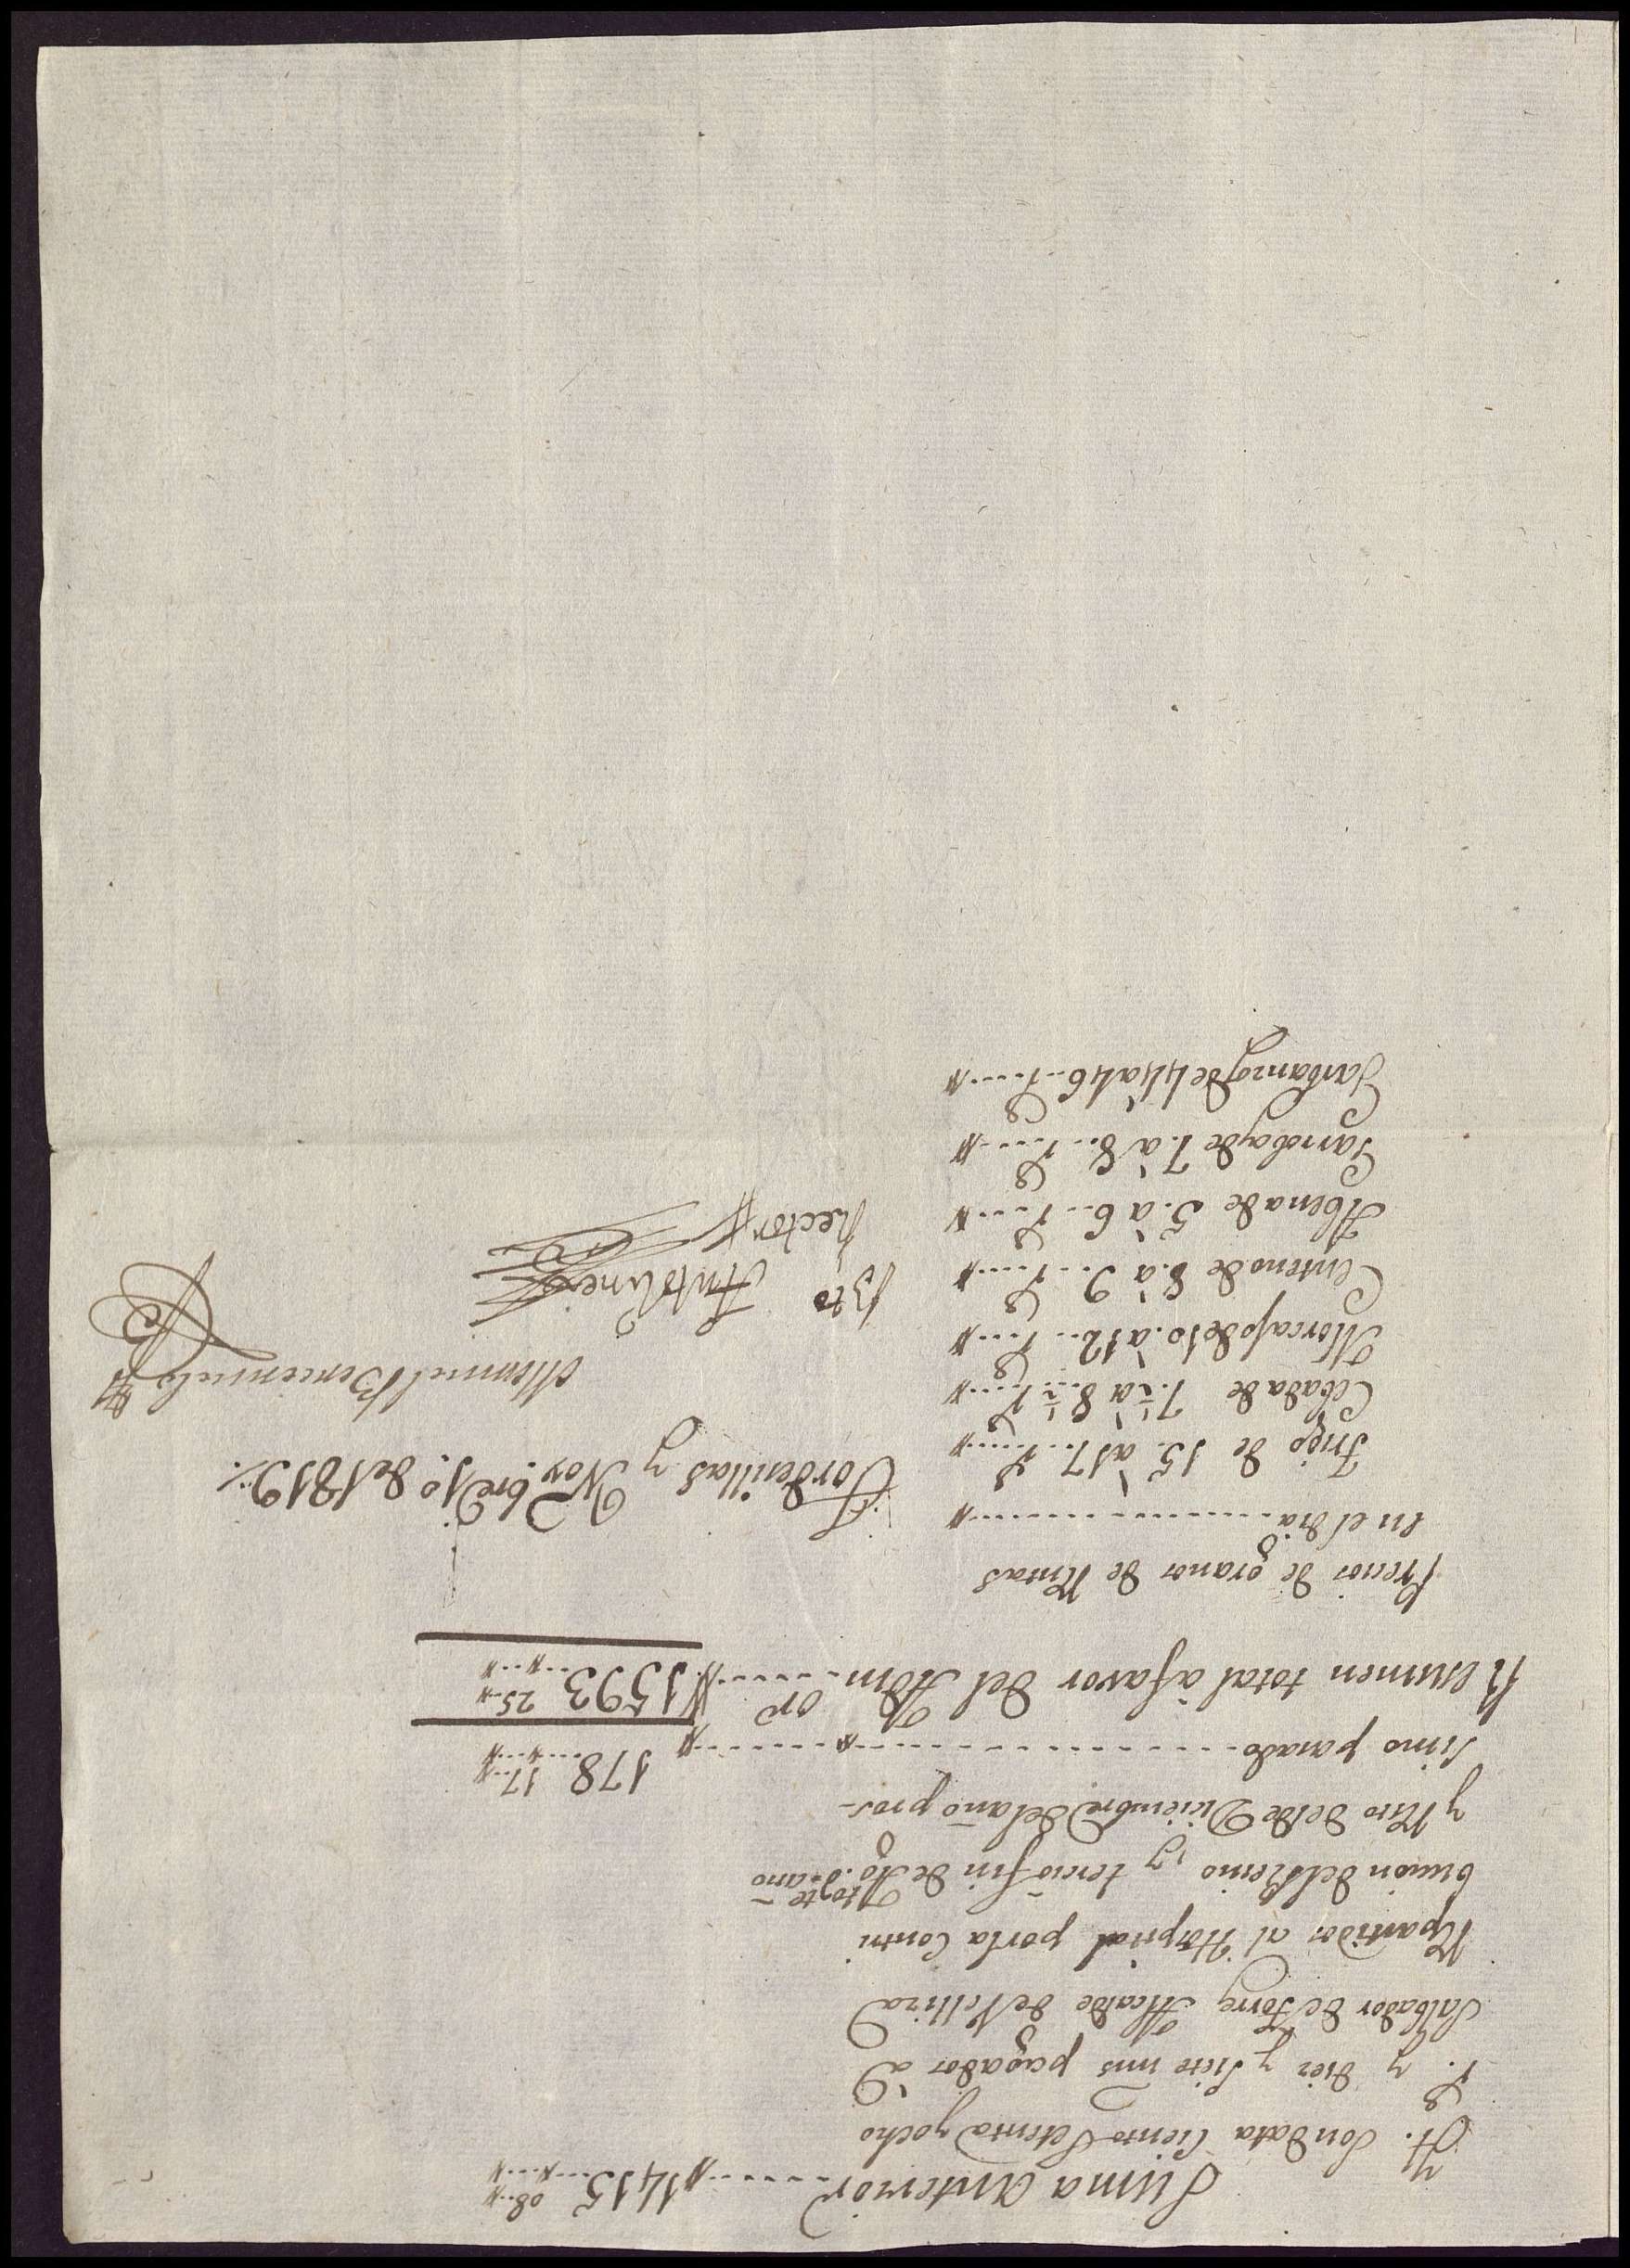 Suma anterior......1415..08..
Yt. Son data Ciento Setenta y ocho
r.s y diez y Siete mrs pagados a
Salbador de Torre Alcalde de Velliza
Rpartidos al Hospital por la Contri
bucion del Reino, y tercio fin de Ag.to de este año
y Rsto desde Diciembre del año pros-
simo pasado..........178..17..
Resumen total á favor del Adm.or......1593..25..
Precios de granos de Rentas
en el dia..........
Trigo de 15. a 17..r.s....
Cebada de 7.½ a 8½ r.s....
Morcajo de 10. a 12..r.s....
Centeno de 8. a 9..r.s....
Abena de 5. a 6..r.s....
Garrobas de 7. a 8..r.s....
Garbanzos de 44 a 46..r.s....
Tordesillas y Nov.bre 10 de 1819.
Manuel Bencenuelo
B.to Antolinez
Rector